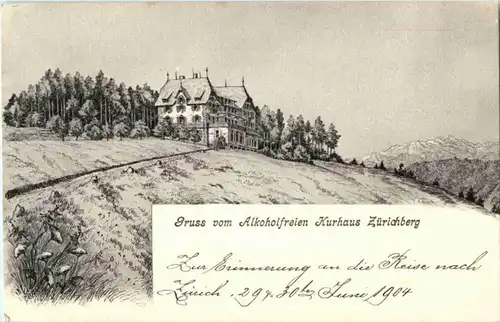 Gruss vom Alkoholfreien Kurhaus Zürichberg
Zur Erinnerung an die Reise nach
Zürich, 29 & 30ten Juni 1904